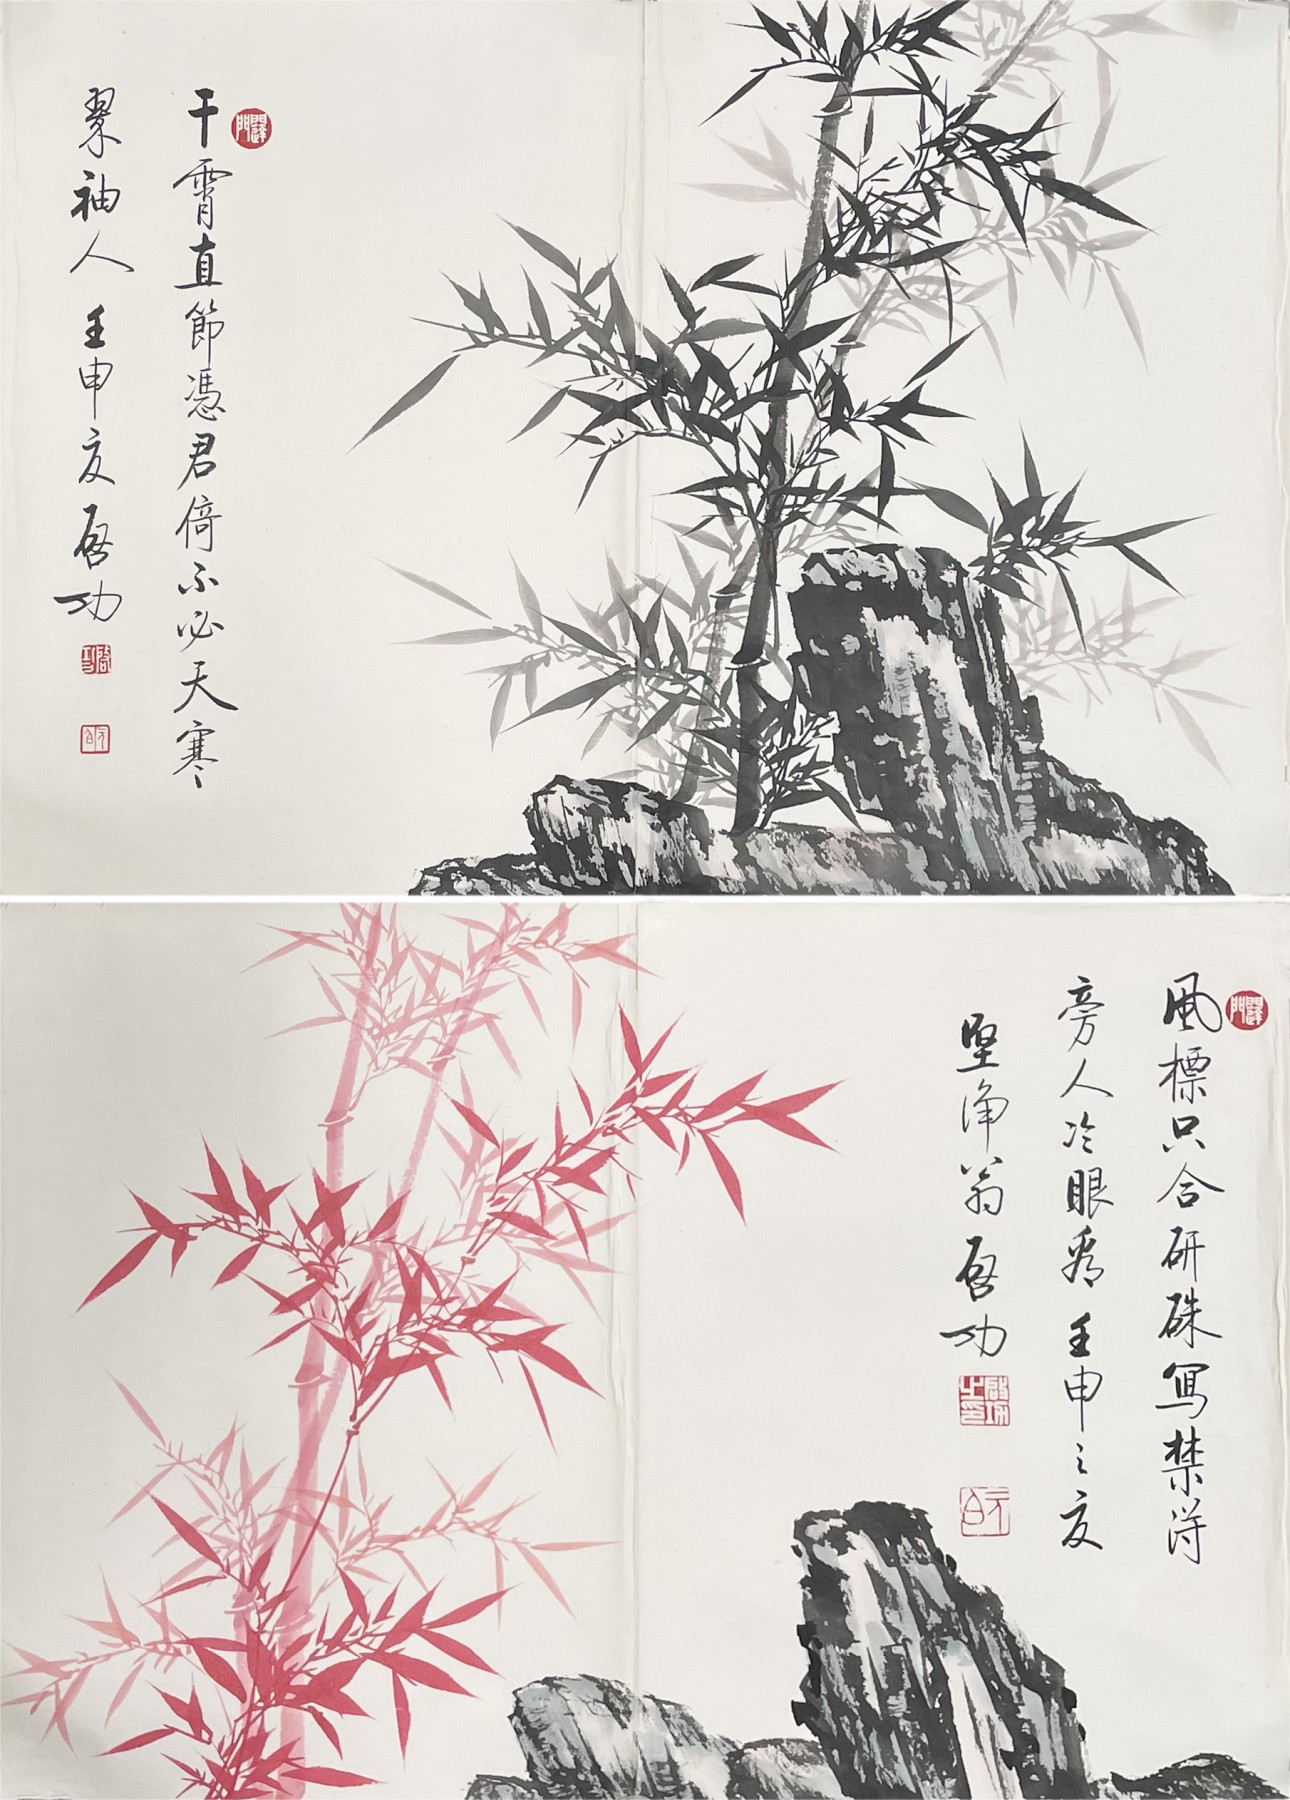 干霄直節憑君倚不必天寒
翠袖人 壬申夏 啓功
風標只合研硃寫禁得
旁人冷眼看 壬申之夏
堅净翁 啓功